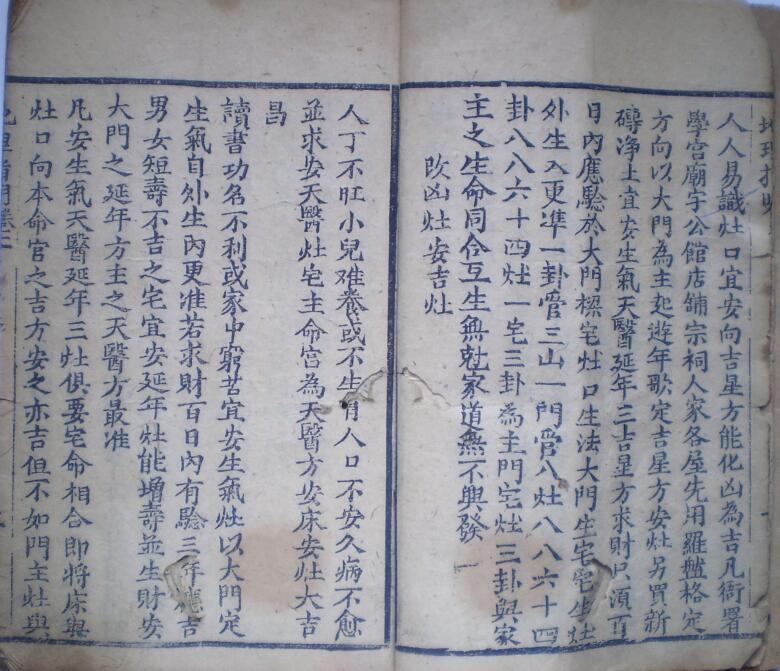 人人易識灶口宜安向吉星方能化凶為吉凡衙署
學宮廟宇公館店鋪宗祠人家各屋先用羅盤格定
方向以大門為主起遊年歌定吉星方安灶另買新
磚淨土宜安生氣天醫延年三吉星方求財只須百
日內應驗於大門樑宅灶口生法大門生宅宅生灶
外生入更準一卦管三山一門管八灶八八六十四
卦八八六十四灶一宅三卦為主門宅灶三卦與家
主之生命同合互生無尅家道無不興發
改凶灶安吉灶
人丁不旺小兒难養或不生育人口不安久病不愈
並求安天醫灶宅主命宮為天醫方安床安灶大吉
昌
讀書功名不利或家中窮苦宜安生氣灶以大門定
生氣自外生內更准若求財百日內有驗三年應吉
男女短壽不吉之宅宜安延年灶能增壽並生財安
大門之延年方主之天醫方最准
凡安生氣天醫延年三灶俱要宅命相合即將床與
灶口向本命宮之吉方安之亦吉但不如門主灶與